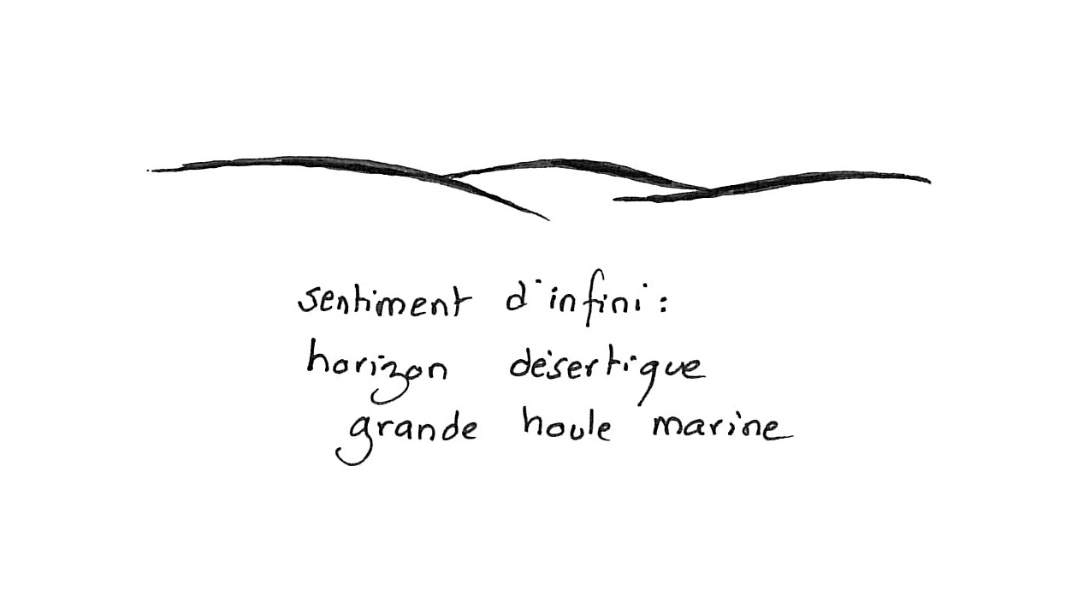 sentiment d'infini :
horizon désertique
grande houle marine